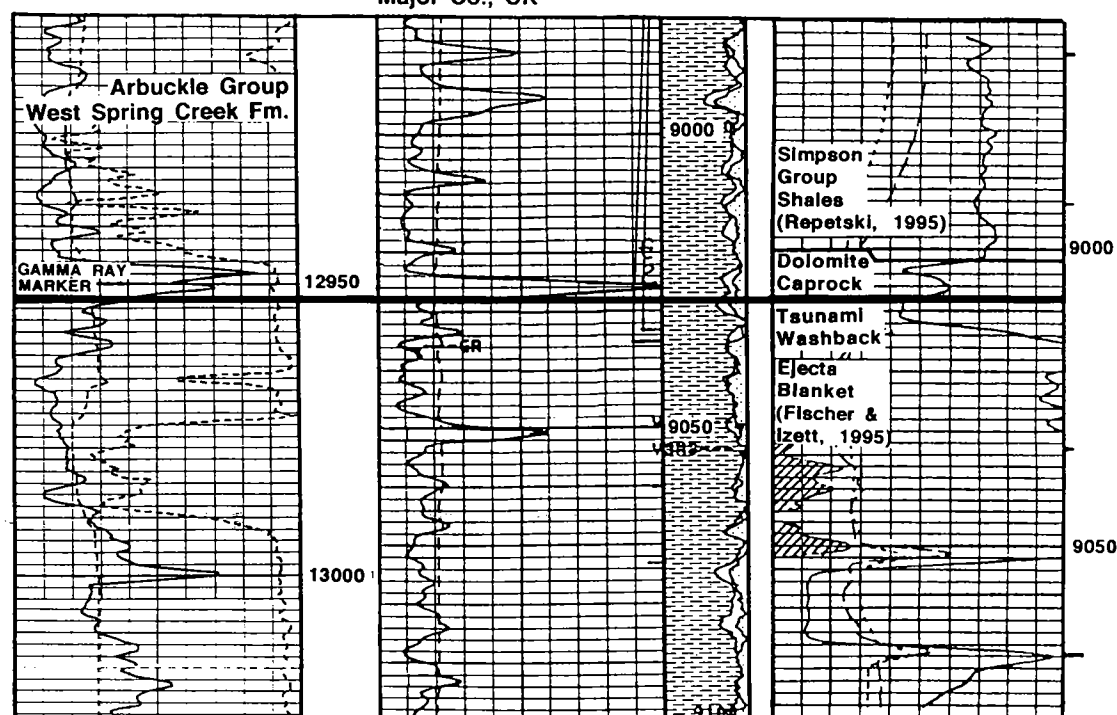 Major Co., OK
Arbuckle Group
West Spring Creek Fm.
GAMMA RAY
MARKER
12950
13000
GR
9000
9050
Simpson
Group
Shales
(Repetski, 1995)
Dolomite
Caprock
Tsunami
Washback
Ejecta
Blanket
(Fischer &
Izett, 1995)
9000
9050